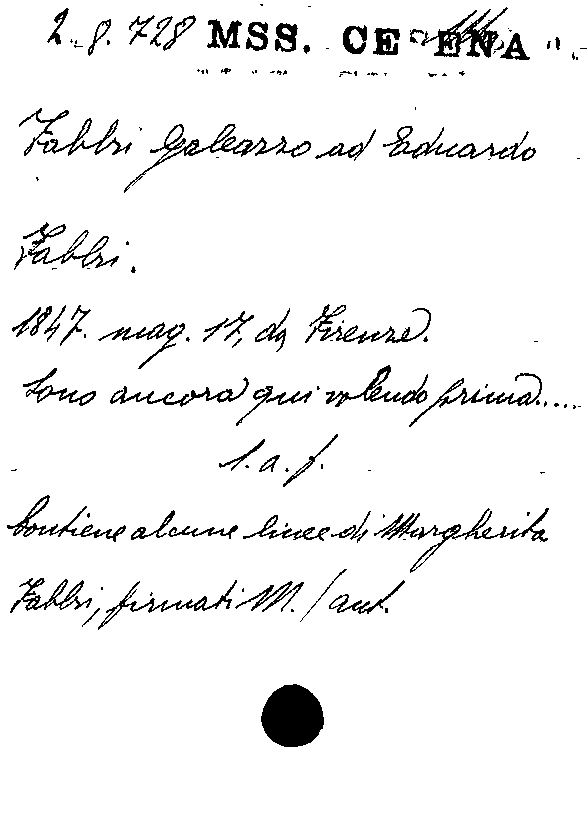 2. 8. 728 MSS. CESENA
Fabbri Galeazzo ad Eduardo
Fabbri.
1847. mag. 17, da Firenze.
Sono ancora qui volendo prima.....
l. a. f.
Contiene alcune linee di Margherita
Fabbri, firmati M. / aut.